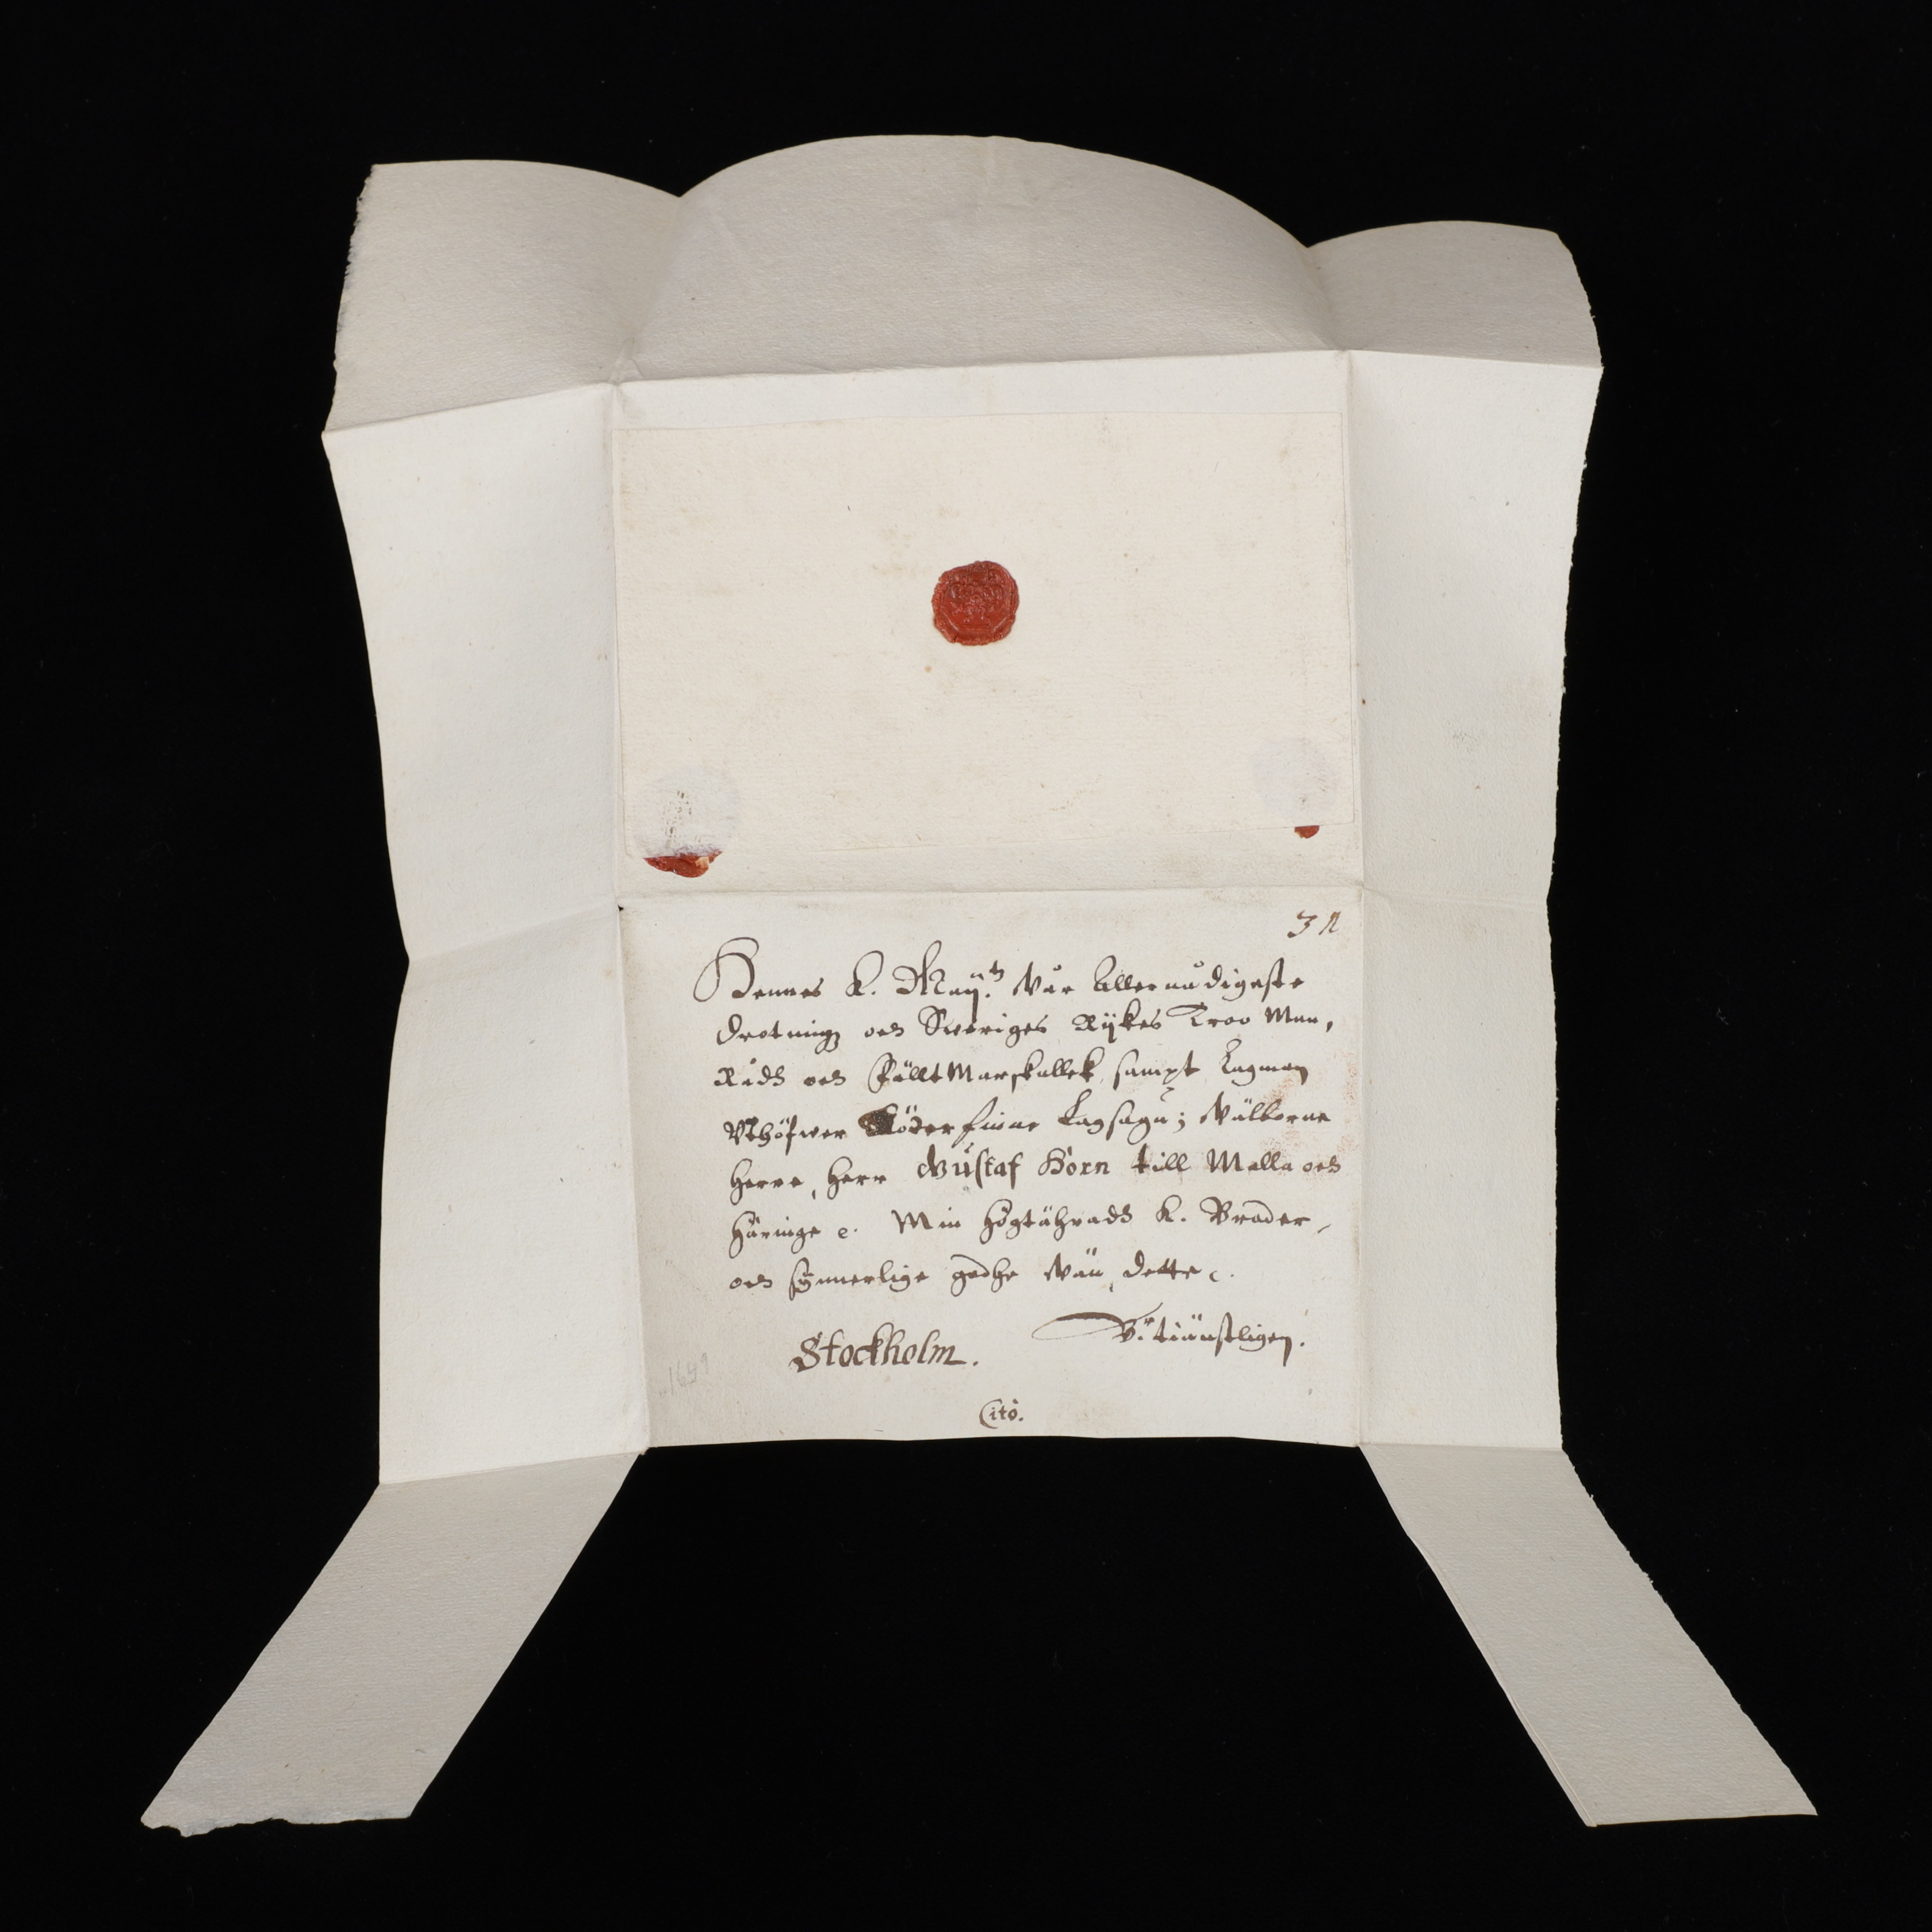 32
Hennes K. Maij:tz Vår Allernådigaste
Drotningz och Sweriges Rijkes Troo Man,
Rådh och Fälltmarskallek, sampt Lagman
Vthöfwer Söderfinne Lagsagu; Wälborne
Herre, Herr Gustaf Horn till Malla och
Häringe e. Min högtährade K. Broder,
och synnerlige godhe Wän, dette.
V. tiänstligen.
Stockholm.
1649
Cito.